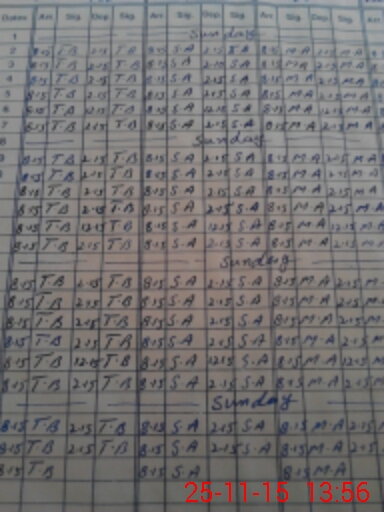 Dates Arr. Sig. Dep. Sig. Arr. Sig. Dep. Sig. Arr. Sig. Dep. Sig. Arr.
1 Sunday
2 8.15 T.B 2.15 T.B 8.15 S.A 2.15 S.A 8.15 M.A 2.15 M.A
3 8.15 T.B 2.15 T.B 8.15 S.A 2.15 S.A 8.15 M.A 2.15 M.A
4 8.15 T.B 2.15 T.B 8.15 S.A 2.15 S.A 8.15 M.A 2.15 M.A
5 8.15 T.B 2.15 T.B 8.15 S.A 2.15 S.A 8.15 M.A 2.15 M.A
6 8.15 T.B 12.15 T.B 8.15 S.A 12.15 S.A 8.15 M.A 12.15 M.A
7 8.15 T.B 2.15 T.B 8.15 S.A 2.15 S.A 8.15 M.A 2.15 M.A
8 Sunday
9 8.15 T.B 2.15 T.B 8.15 S.A 2.15 S.A 8.15 M.A 2.15 M.A
8.15 T.B 2.15 T.B 8.15 S.A 2.15 S.A 8.15 M.A 2.15 M.A
8.15 T.B 2.15 T.B 8.15 S.A 2.15 S.A 8.15 M.A 2.15 M.A
8.15 T.B 2.15 T.B 8.15 S.A 2.15 S.A 8.15 M.A 2.15 M.A
8.15 T.B 12.15 T.B 8.15 S.A 12.15 S.A 8.15 M.A 12.15 M.A
8.15 T.B 2.15 T.B 8.15 S.A 2.15 S.A 8.15 M.A 2.15 M.A
Sunday
8.15 T.B 2.15 T.B 8.15 S.A 2.15 S.A 8.15 M.A 2.15
8.15 T.B 2.15 T.B 8.15 S.A 2.15 S.A 8.15 M.A 2.15
8.15 T.B 2.15 T.B 8.15 S.A 2.15 S.A 8.15 M.A 2.15
8.15 T.B 2.15 T.B 8.15 S.A 2.15 S.A 8.15 M.A 2.15
8.15 T.B 12.15 T.B 8.15 S.A 12.15 S.A 8.15 M.A 12.15
8.15 T.B 2.15 T.B 8.15 S.A 2.15 S.A 8.15 M.A 2.15
Sunday
8.15 T.B 2.15 T.B 8.15 S.A 2.15 S.A 8.15 M.A 2.15
8.15 T.B 2.15 T.B 8.15 S.A 2.15 S.A 8.15 M.A 2.15
8.15 T.B 8.15 S.A 8.15 M.A
25-11-15 13:56